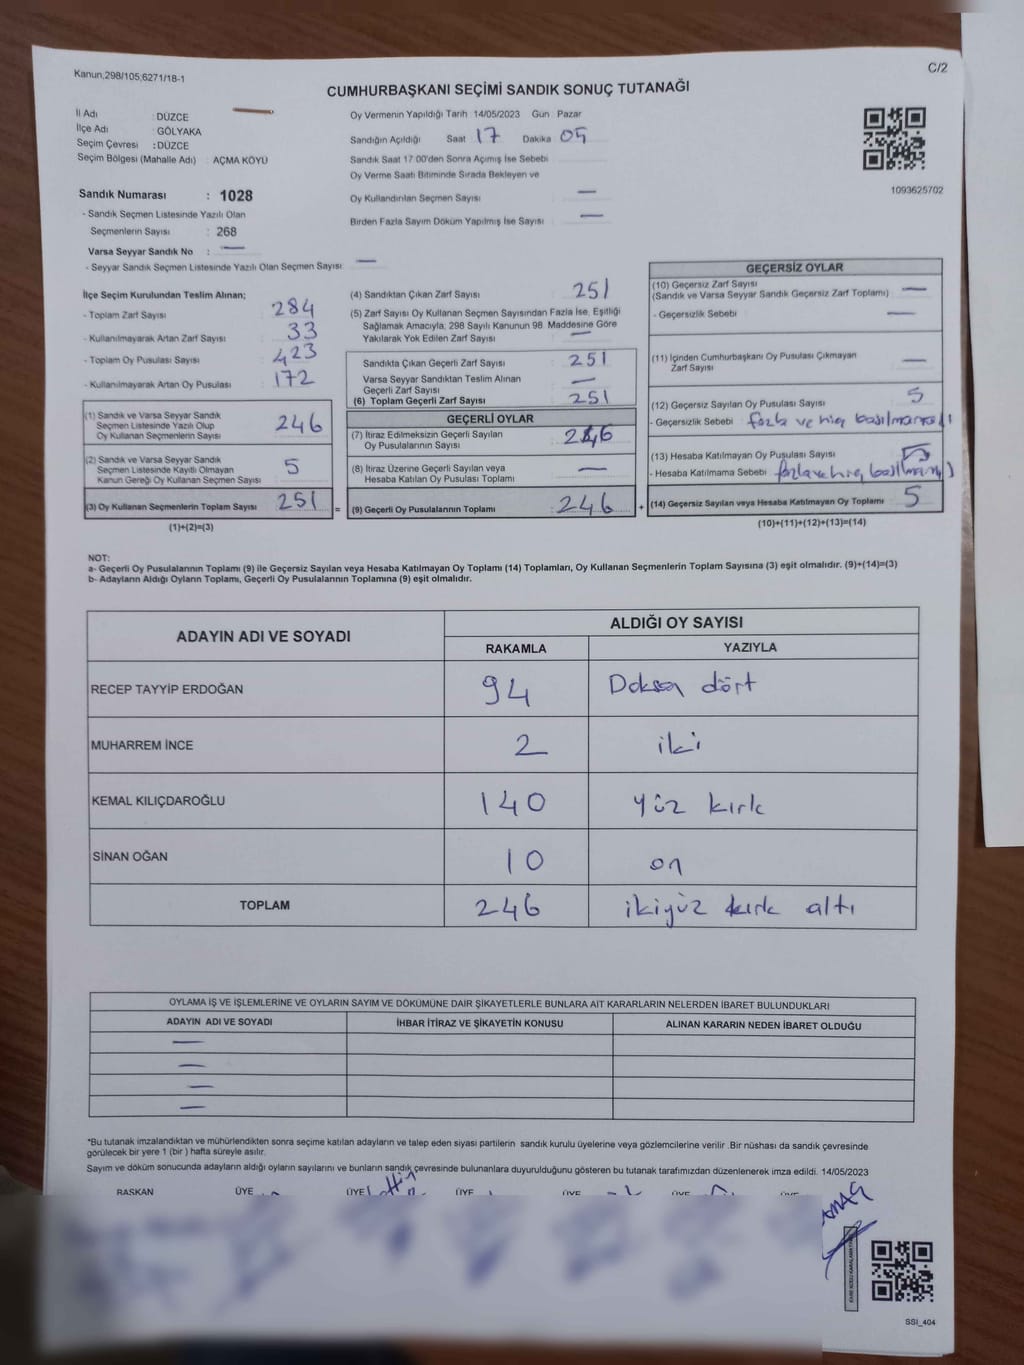 Kanun,298/105,6271/18-1
C/2
CUMHURBAŞKANI SEÇİMİ SANDIK SONUÇ TUTANAĞI
İl Adı : DÜZCE
İlçe Adı : GÖLYAKA
Seçim Çevresi : DÜZCE
Seçim Bölgesi (Mahalle Adı) : AÇMA KÖYÜ
Sandık Numarası : 1028
- Sandık Seçmen Listesinde Yazılı Olan
Seçmenlerin Sayısı : 268
Varsa Seyyar Sandık No : —
- Seyyar Sandık Seçmen Listesinde Yazılı Olan Seçmen Sayısı: —
Oy Vermenin Yapıldığı Tarih 14/05/2023 Gün : Pazar
Sandığın Açıldığı Saat 17 Dakika 05
Sandık Saat 17:00'den Sonra Açımış İse Sebebi
Oy Verme Saati Bitiminde Sırada Bekleyen ve
Oy Kullandırılan Seçmen Sayısı : —
Birden Fazla Sayım Döküm Yapılmış İse Sayısı : —
1093625702
İlçe Seçim Kurulundan Teslim Alınan;
- Toplam Zarf Sayısı : 284
- Kullanılmayarak Artan Zarf Sayısı : 33
- Toplam Oy Pusulası Sayısı : 423
- Kullanılmayarak Artan Oy Pusulası : 172
(1) Sandık ve Varsa Seyyar Sandık
Seçmen Listesinde Yazılı Olup
Oy Kullanan Seçmenlerin Sayısı : 246
(2) Sandık ve Varsa Seyyar Sandık
Seçmen Listesinde Kayıtlı Olmayan
Kanun Gereği Oy Kullanan Seçmen Sayısı : 5
(3) Oy Kullanan Seçmenlerin Toplam Sayısı : 251 =
(1)+(2)=(3)
(4) Sandıktan Çıkan Zarf Sayısı : 251
(5) Zarf Sayısı Oy Kullanan Seçmen Sayısından Fazla İse, Eşitliği
Sağlamak Amacıyla; 298 Sayılı Kanunun 98. Maddesine Göre
Yakılarak Yok Edilen Zarf Sayısı : —
Sandıkta Çıkan Geçerli Zarf Sayısı : 251
Varsa Seyyar Sandıktan Teslim Alınan
Geçerli Zarf Sayısı : —
(6) Toplam Geçerli Zarf Sayısı : 251
GEÇERLİ OYLAR
(7) İtiraz Edilmeksizin Geçerli Sayılan
Oy Pusulasının Sayısı : 246
(8) İtiraz Üzerine Geçerli Sayılan veya
Hesaba Katılan Oy Pusulası Toplamı : —
(9) Geçerli Oy Pusulalarının Toplamı : 246 +
GEÇERSİZ OYLAR
(10) Geçersiz Zarf Sayısı : —
(Sandık ve Varsa Seyyar Sandık Geçersiz Zarf Toplamı)
- Geçersizlik Sebebi : —
(11) İçinden Cumhurbaşkanı Oy Pusulası Çıkmayan
Zarf Sayısı : —
(12) Geçersiz Sayılan Oy Pusulası Sayısı : 5
- Geçersizlik Sebebi : fazla ve hiç basılmaması
(13) Hesaba Katılmayan Oy Pusulası Sayısı
- Hesaba Katılmama Sebebi
(14) Geçersiz Sayılan veya Hesaba Katılmayan Oy Toplamı : 5
(10)+(11)+(12)+(13)=(14)
NOT:
a- Geçerli Oy Pusulalarının Toplamı (9) ile Geçersiz Sayılan veya Hesaba Katılmayan Oy Toplamı (14) Toplamları, Oy Kullanan Seçmenlerin Toplam Sayısına (3) eşit olmalıdır. (9)+(14)=(3)
b- Adayların Aldığı Oyların Toplamı, Geçerli Oy Pusulalarının Toplamına (9) eşit olmalıdır.
ADAYIN ADI VE SOYADI
ALDIĞI OY SAYISI
RAKAMLA YAZIYLA
RECEP TAYYİP ERDOĞAN 94 Doksan dört
MUHARREM İNCE 2 iki
KEMAL KILIÇDAROĞLU 140 yüz kırk
SİNAN OĞAN 10 on
TOPLAM 246 ikiyüz kırk altı
OYLAMA İŞ VE İŞLEMLERİNE VE OYLARIN SAYIM VE DÖKÜMÜNE DAİR ŞİKAYETLERLE BUNLARA AİT KARARLARIN NELERDEN İBARET BULUNDUKLARI
ADAYIN ADI VE SOYADI İHBAR İTİRAZ VE ŞİKAYETİN KONUSU ALINAN KARARIN NEDEN İBARET OLDUĞU
—
—
—
—
*Bu tutanak imzalandıktan ve mühürlendikten sonra seçime katılan adayların ve talep eden siyasi partilerin sandık kurulu üyelerine veya gözlemcilerine verilir .Bir nüshası da sandık çevresinde
görülecek bir yere 1 (bir ) hafta süreyle asılır.
Sayım ve döküm sonucunda adayların aldığı oyların sayılarını ve bunların sandık çevresinde bulunanlara duyurulduğunu gösteren bu tutanak tarafımızdan düzenlenerek imza edildi. 14/05/2023
BAŞKAN ÜYE ÜYE ÜYE ÜYE ÜYE ÜYE
SSI_404